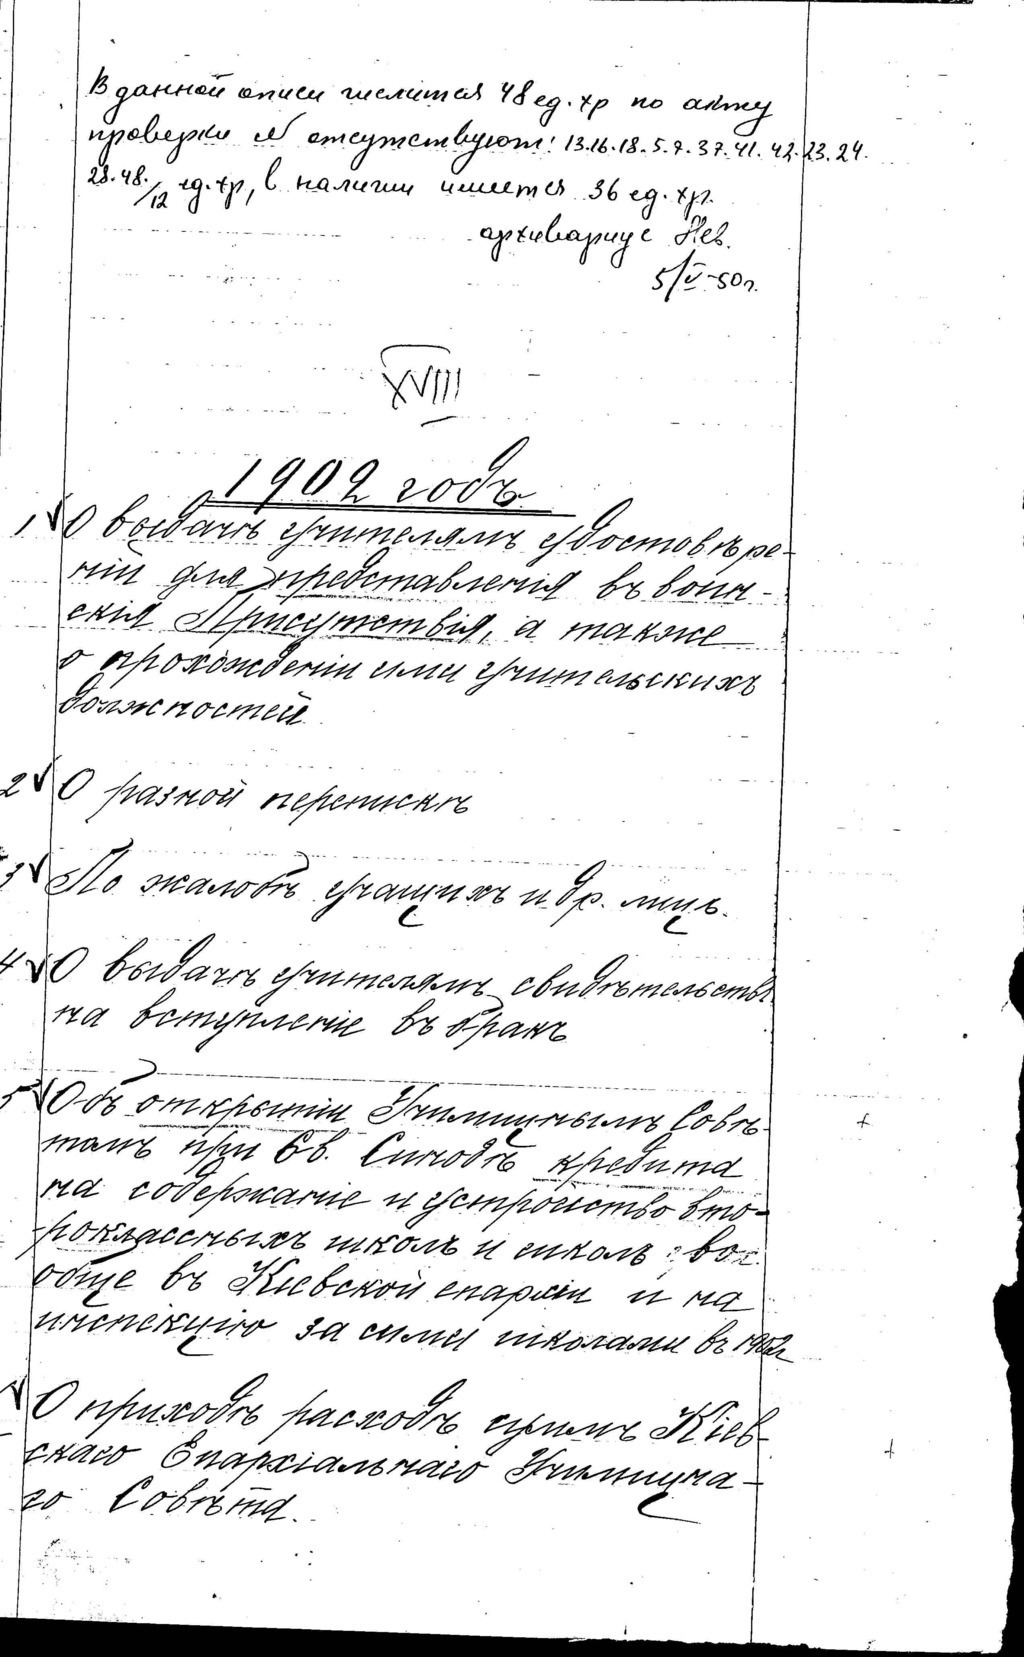 В данной описи числится 48 ед. хр по акту
проверки № отсутствуют: 13.16.18.5.7.37.41.42.23.24.
28.48. /12 ед. хр, в наличии имеется 36 ед. хр.
архивариус
5/V-50г.
XVIII
1902 годъ
1 О выдачѣ учителямъ удостовѣре-
ній для представленія въ воин-
скія Присутствія, а также
о прохожденіи ими учительскихъ
должностей
2 О разной перепискѣ
3 По жалобѣ учащихъ и др. лицъ.
4 О выдачѣ учителямъ свидѣтельствъ
на вступленіе въ бракъ
5 Объ открытіи Училищнымъ Совѣ-
томъ при Св. Синодѣ кредита
на содержаніе и устройство вто-
роклассныхъ школъ и школъ во-
обще въ Кіевской епархіи и на
инспекцію за сими школами въ 1902г
О приходѣ расходѣ суммъ Кіев-
скаго Епархіальнаго Училищна-
го Совѣта.